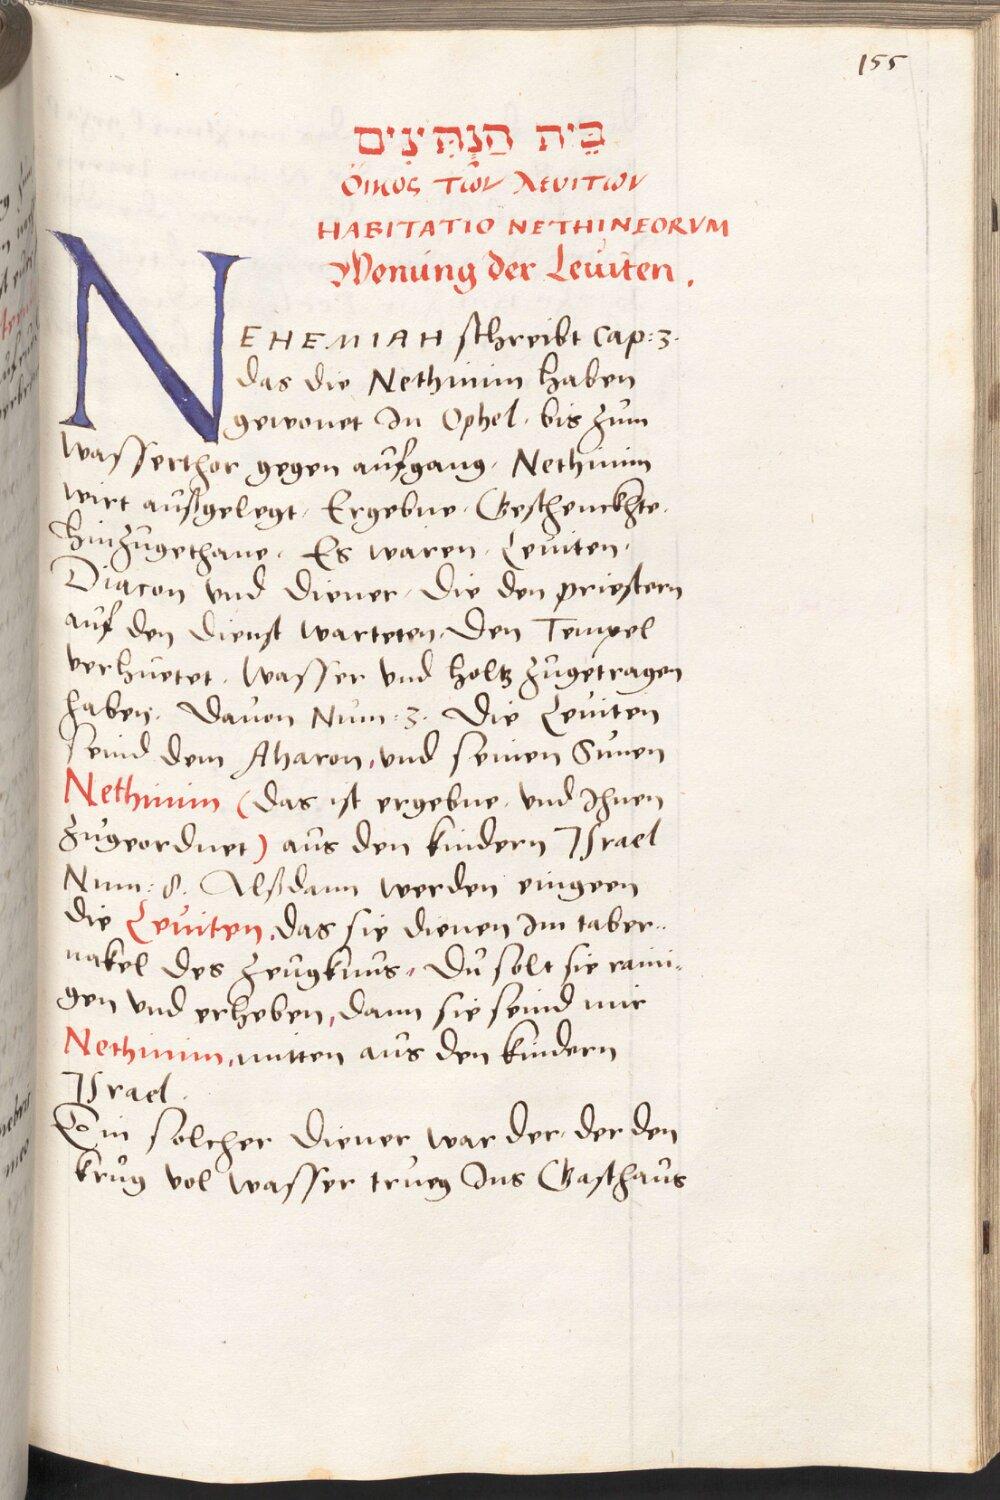 155
בֵּית הַנְּתִינִים
Οἶκος τῶν λευιτῶν
HABITATIO NETHINEORVM
Wonung der Leuiten.
NEHEMIAH schreibt Cap: 3.
das die Nethinim haben
gewonet In Ophel. bis zum
wasserthor gegen aufgang. Nethinim
wirt außgelegt, Ergebne. Geschenckhte.
hinzugethane. Es waren. Leuiten.
Diacon vnd diener, die den priestern
auf den dienst warteten. Den Tempel
verhuetet. Wasser vnd holtz zugetragen
haben. Dauon Num: 3. Die Leuiten
seind dem Aharon, vnd seinen Sunen
Nethinim (das ist ergebne. vnd Ihnen
zugeordnet) aus den kindern Israel
Num: 8. Alßdann werden eingeen
die Leuiten, das sie dienen Im taber-
nakel des zeugknus, Du solt sie raini-
gen vnd erheben, dann sie seind mir
Nethinim, mitten aus den kindern
Israel.
Ein solcher diener war der, der den
krug vol wasser trueg Ins Gasthaus